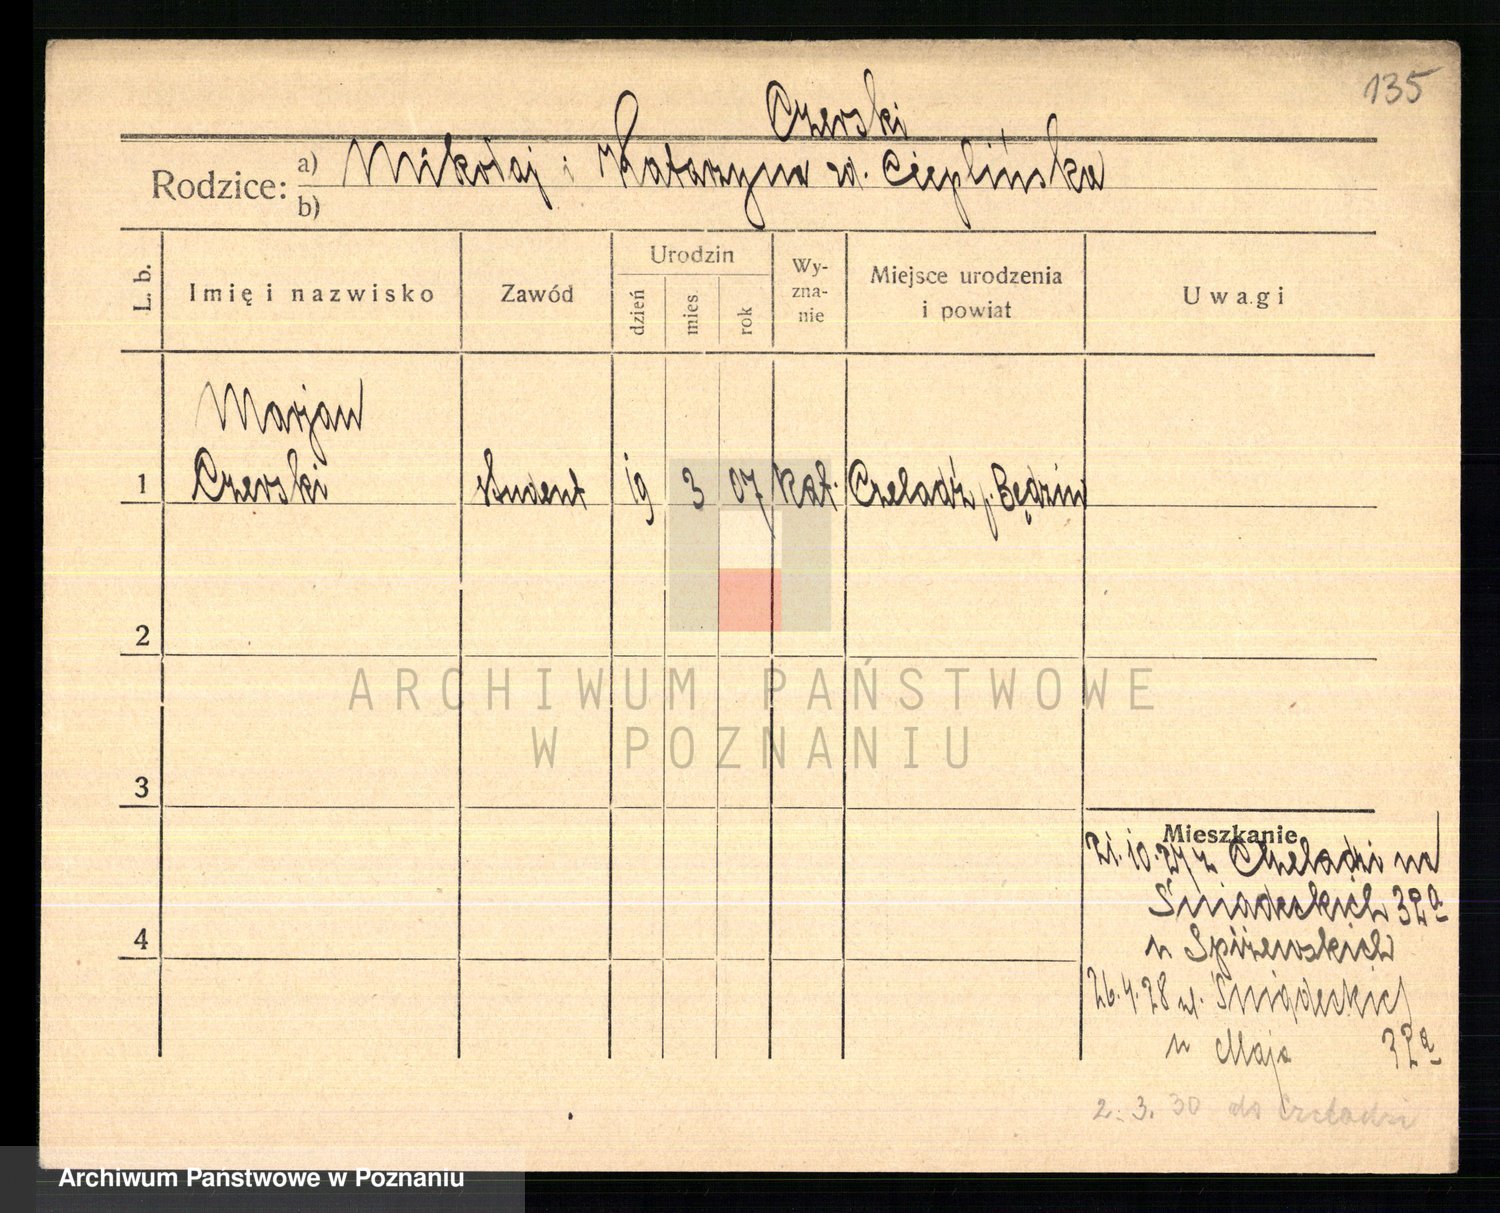 135
Czerski
Rodzice: a) Mikołaj i Katarzyna zd. Cieplińska
b)
L. b.
Imię i nazwisko
Zawód
Urodzin
dzień
mies.
rok
Wy-
zna-
nie
Miejsce urodzenia
i powiat
Uwagi
Marjan
1 Czerski student 19 3 07 kat. Czeladź p. Będzin
2
ARCHIWUM PAŃSTWOWE
W POZNANIU
3
Mieszkanie
21.10.27 z Czeladzi na
Śniadeckich 32a
4
u Spiżewskich
26.4.28 ul. Śniadeckich
u Maja 32a
2. 3. 30 do Czeladzi
Archiwum Państwowe w Poznaniu